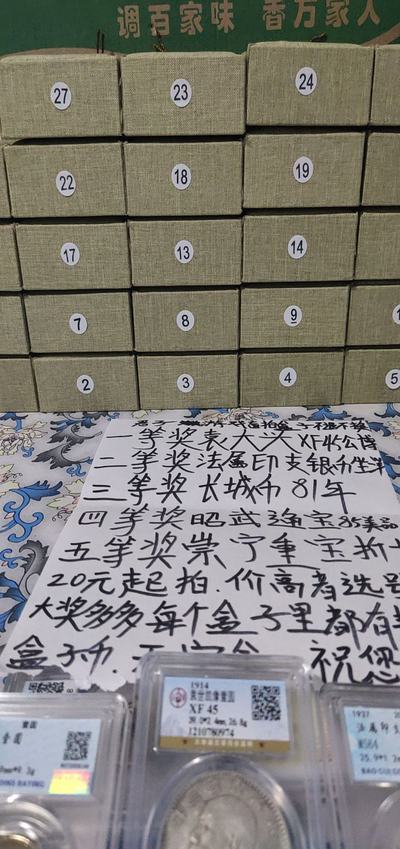 调百家味 香万家人
27 23 24
22 18 19
17 13 14
7 8 9
2 3 4 5
一等奖袁大头XF45公博
二等奖法属印支银币坐洋
三等奖长城币81年
四等奖昭武通宝85美品
五等奖崇宁重宝折十
20元起拍.价高者选号
大奖多多每个盒子里都有
盒子币. 祝您
壹圆
1914
袁世凯像壹圆
XF 45
39.0*2.4mm,26.8g
1210780974
1937
法属印支
MS64